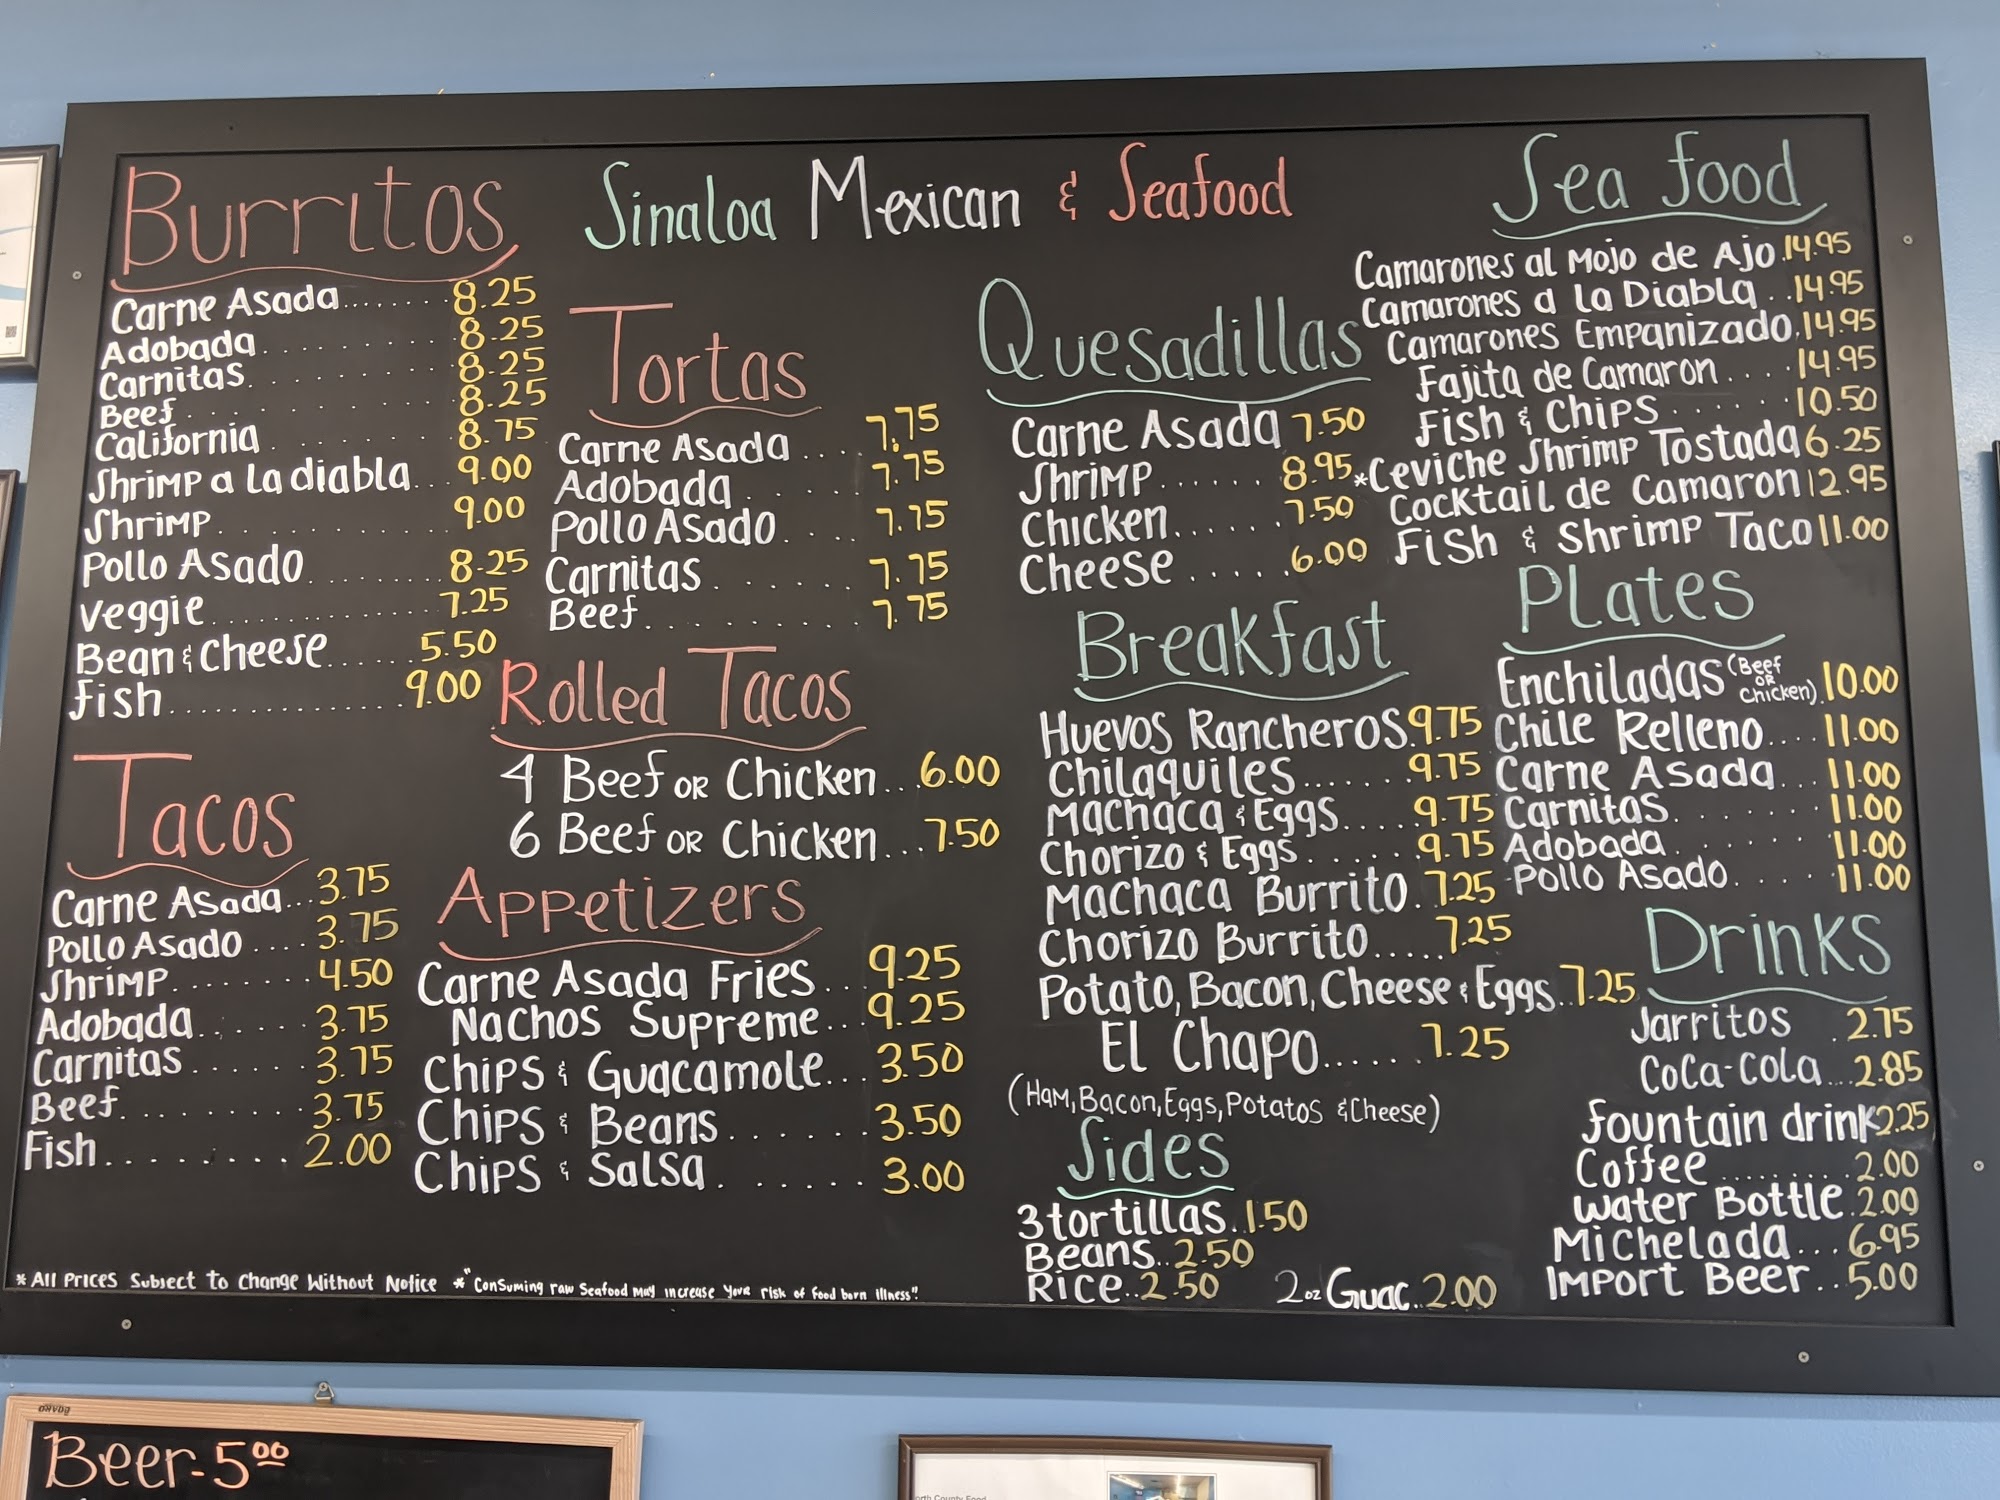 Sinaloa Mexican & Seafood
Burritos
Carne Asada....... 8.25
Adobada.......... 8.25
Carnitas.......... 8.25
Beef........... 8.25
California........ 8.75
Shrimp a la diabla... 9.00
Shrimp.......... 9.00
Pollo Asado........ 8.25
Veggie............. 7.25
Bean & Cheese...... 5.50
Fish.............. 9.00
Tacos
Carne Asada... 3.75
Pollo Asado .... 3.75
Shrimp........ 4.50
Adobada....... 3.75
Carnitas ...... 3.75
Beef.......... 3.75
Fish......... 2.00
Tortas
Carne Asada .... 7.75
Adobada...... 7.75
Pollo Asado.... 7.75
Carnitas ...... 7.75
Beef.......... 7.75
Rolled Tacos
4 Beef or Chicken... 6.00
6 Beef or Chicken... 7.50
Appetizers
Carne Asada Fries... 9.25
Nachos Supreme... 9.25
Chips & Guacamole... 3.50
Chips & Beans...... 3.50
Chips & Salsa...... 3.00
Quesadillas
Carne Asada 7.50
Shrimp...... 8.95
Chicken...... 7.50
Cheese ..... 6.00
Breakfast
Huevos Rancheros. 9.75
Chilaquiles...... 9.75
Machaca & Eggs.... 9.75
Chorizo & Eggs...... 9.75
Machaca Burrito. 7.25
Chorizo Burrito..... 7.25
Potato, Bacon, Cheese & Eggs.. 7.25
El Chapo..... 7.25
(Ham, Bacon, Eggs, Potatos & Cheese)
Sides
3 tortillas.. 1.50
Beans.. 2.50
Rice.. 2.50 2oz Guac.. 2.00
Sea food
Camarones al Mojo de Ajo. 14.95
Camarones a la Diabla .. 14.95
Camarones Empanizado. 14.95
Fajita de Camaron.... 14.95
Fish & Chips...... 10.50
*Ceviche Shrimp Tostada 6.25
Cocktail de Camaron 12.95
Fish & Shrimp Taco 11.00
Plates
Enchiladas (Beef or Chicken). 10.00
Chile Relleno.... 11.00
Carne Asada... 11.00
Carnitas....... 11.00
Adobada....... 11.00
Pollo Asado..... 11.00
Drinks
Jarritos . 2.75
Coca-Cola... 2.85
fountain drink 2.25
Coffee ........ 2.00
Water Bottle. 2.00
Michelada... 6.95
Import Beer.. 5.00
* All Prices Subject to Change Without Notice *"Consuming raw Seafood may increase your risk of food born illness".
Beer-5⁰⁰
orth County Food